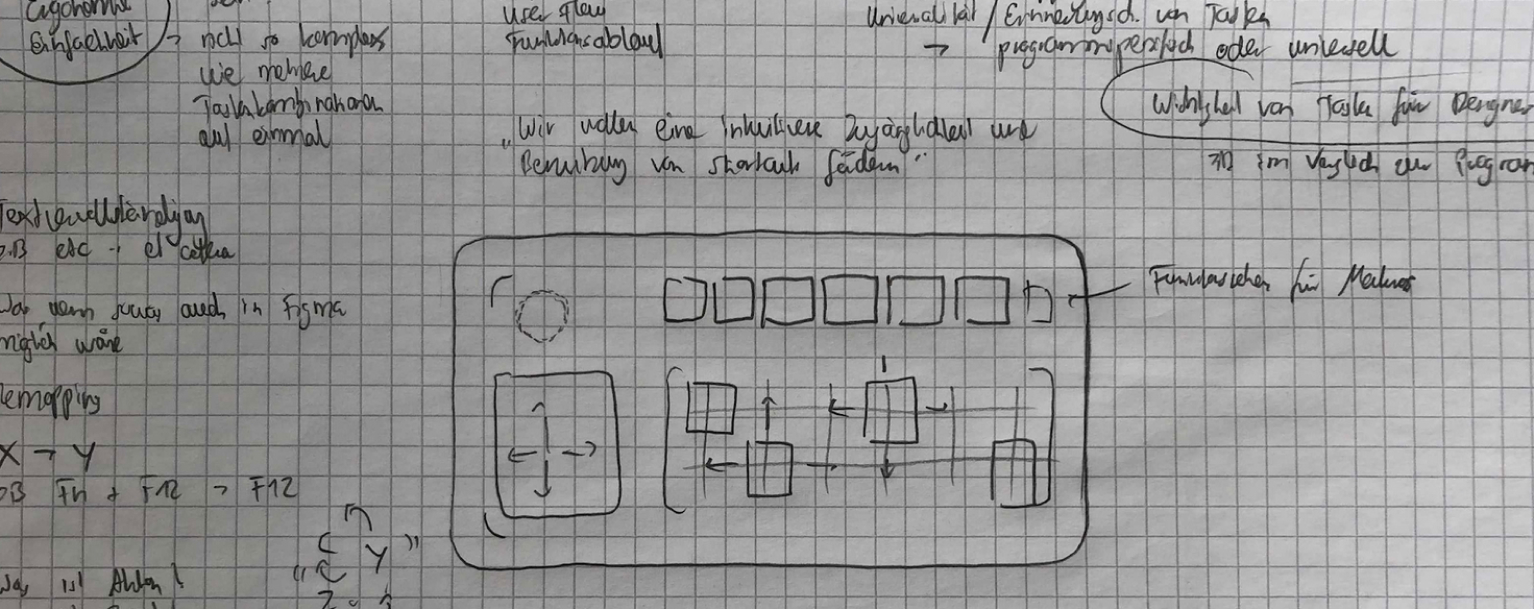 Ergonomie
Einfachheit → nicht so komplex
wie mehrere
Taskkombinationen
auf einmal
User flow
Funktionsablauf
Universalität / Erinnerungsch. von Tasks
→ programmspezifisch oder universell
Wichtigkeit von Tasks für Designer
im Vergleich zu Program
„Wir wollen eine intuitivere Zugänglichkeit und
Benutzung von Shortcuts fördern“
Textvervollständigung
z.B etc → et cetera
wenn sowas auch in Figma
möglich wäre
Remapping
X → Y
z.B Fn + F12 → F12
Funktastchen für Makros
Was ist Aktion?
C Y